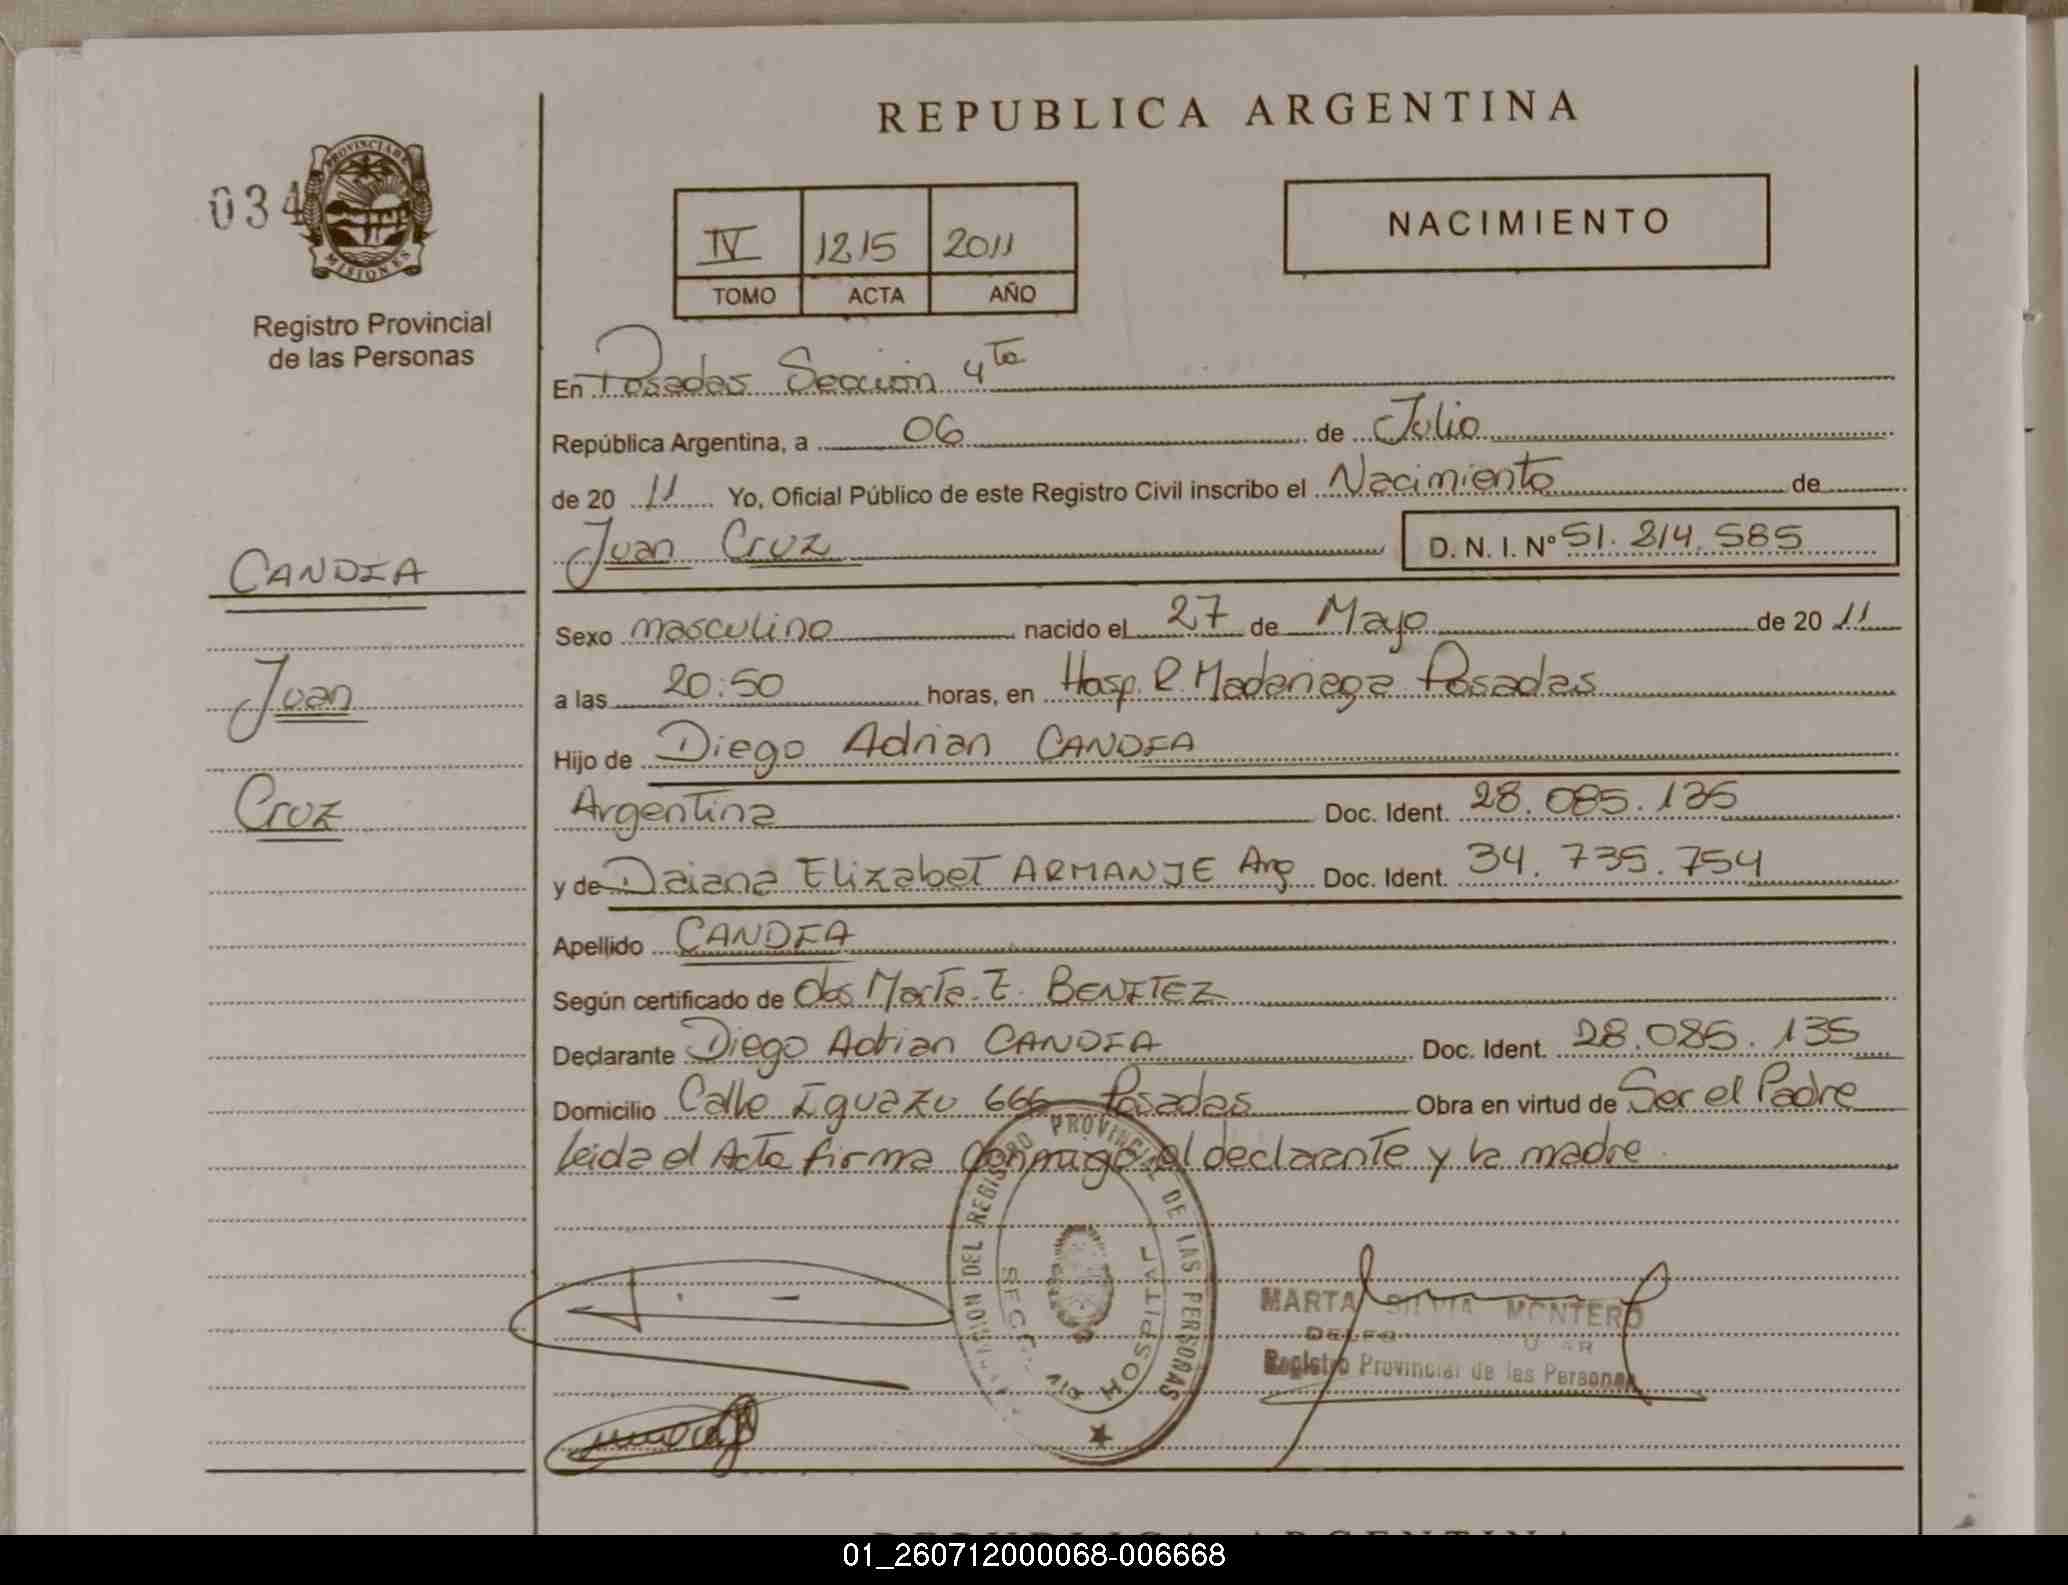 REPUBLICA ARGENTINA
034
PROVINCIA DE
MISIONES
Registro Provincial
de las Personas
IV 1215 2011
TOMO ACTA AÑO
NACIMIENTO
En Posadas Seccion 4ta
República Argentina, a 06 de Julio
de 20 11 Yo, Oficial Público de este Registro Civil inscribo el Nacimiento de
Juan Cruz D. N. I. Nº 51.214.585
CANDIA
Juan
Cruz
Sexo masculino nacido el 27 de Mayo de 20 11
a las 20:50 horas, en Hosp. R. Madariaga Posadas
Hijo de Diego Adrian CANDIA
Argentina Doc. Ident. 28.085.135
y de Daiana Elizabet ARMANJE Arg Doc. Ident. 34.735.754
Apellido CANDIA
Según certificado de Obs Marta E. BENITEZ
Declarante Diego Adrian CANDIA Doc. Ident. 28.085.135
Domicilio Calle Iguazu 666 Posadas Obra en virtud de Ser el Padre
leida el Acta firma conmigo el declarante y la madre
DEL REGISTRO PROVINCIAL DE LAS PERSONAS
HOSPITAL
MARTA SILVIA MONTERO
Registro Provincial de las Personas
REPUBLICA ARGENTINA
01_260712000068-006668